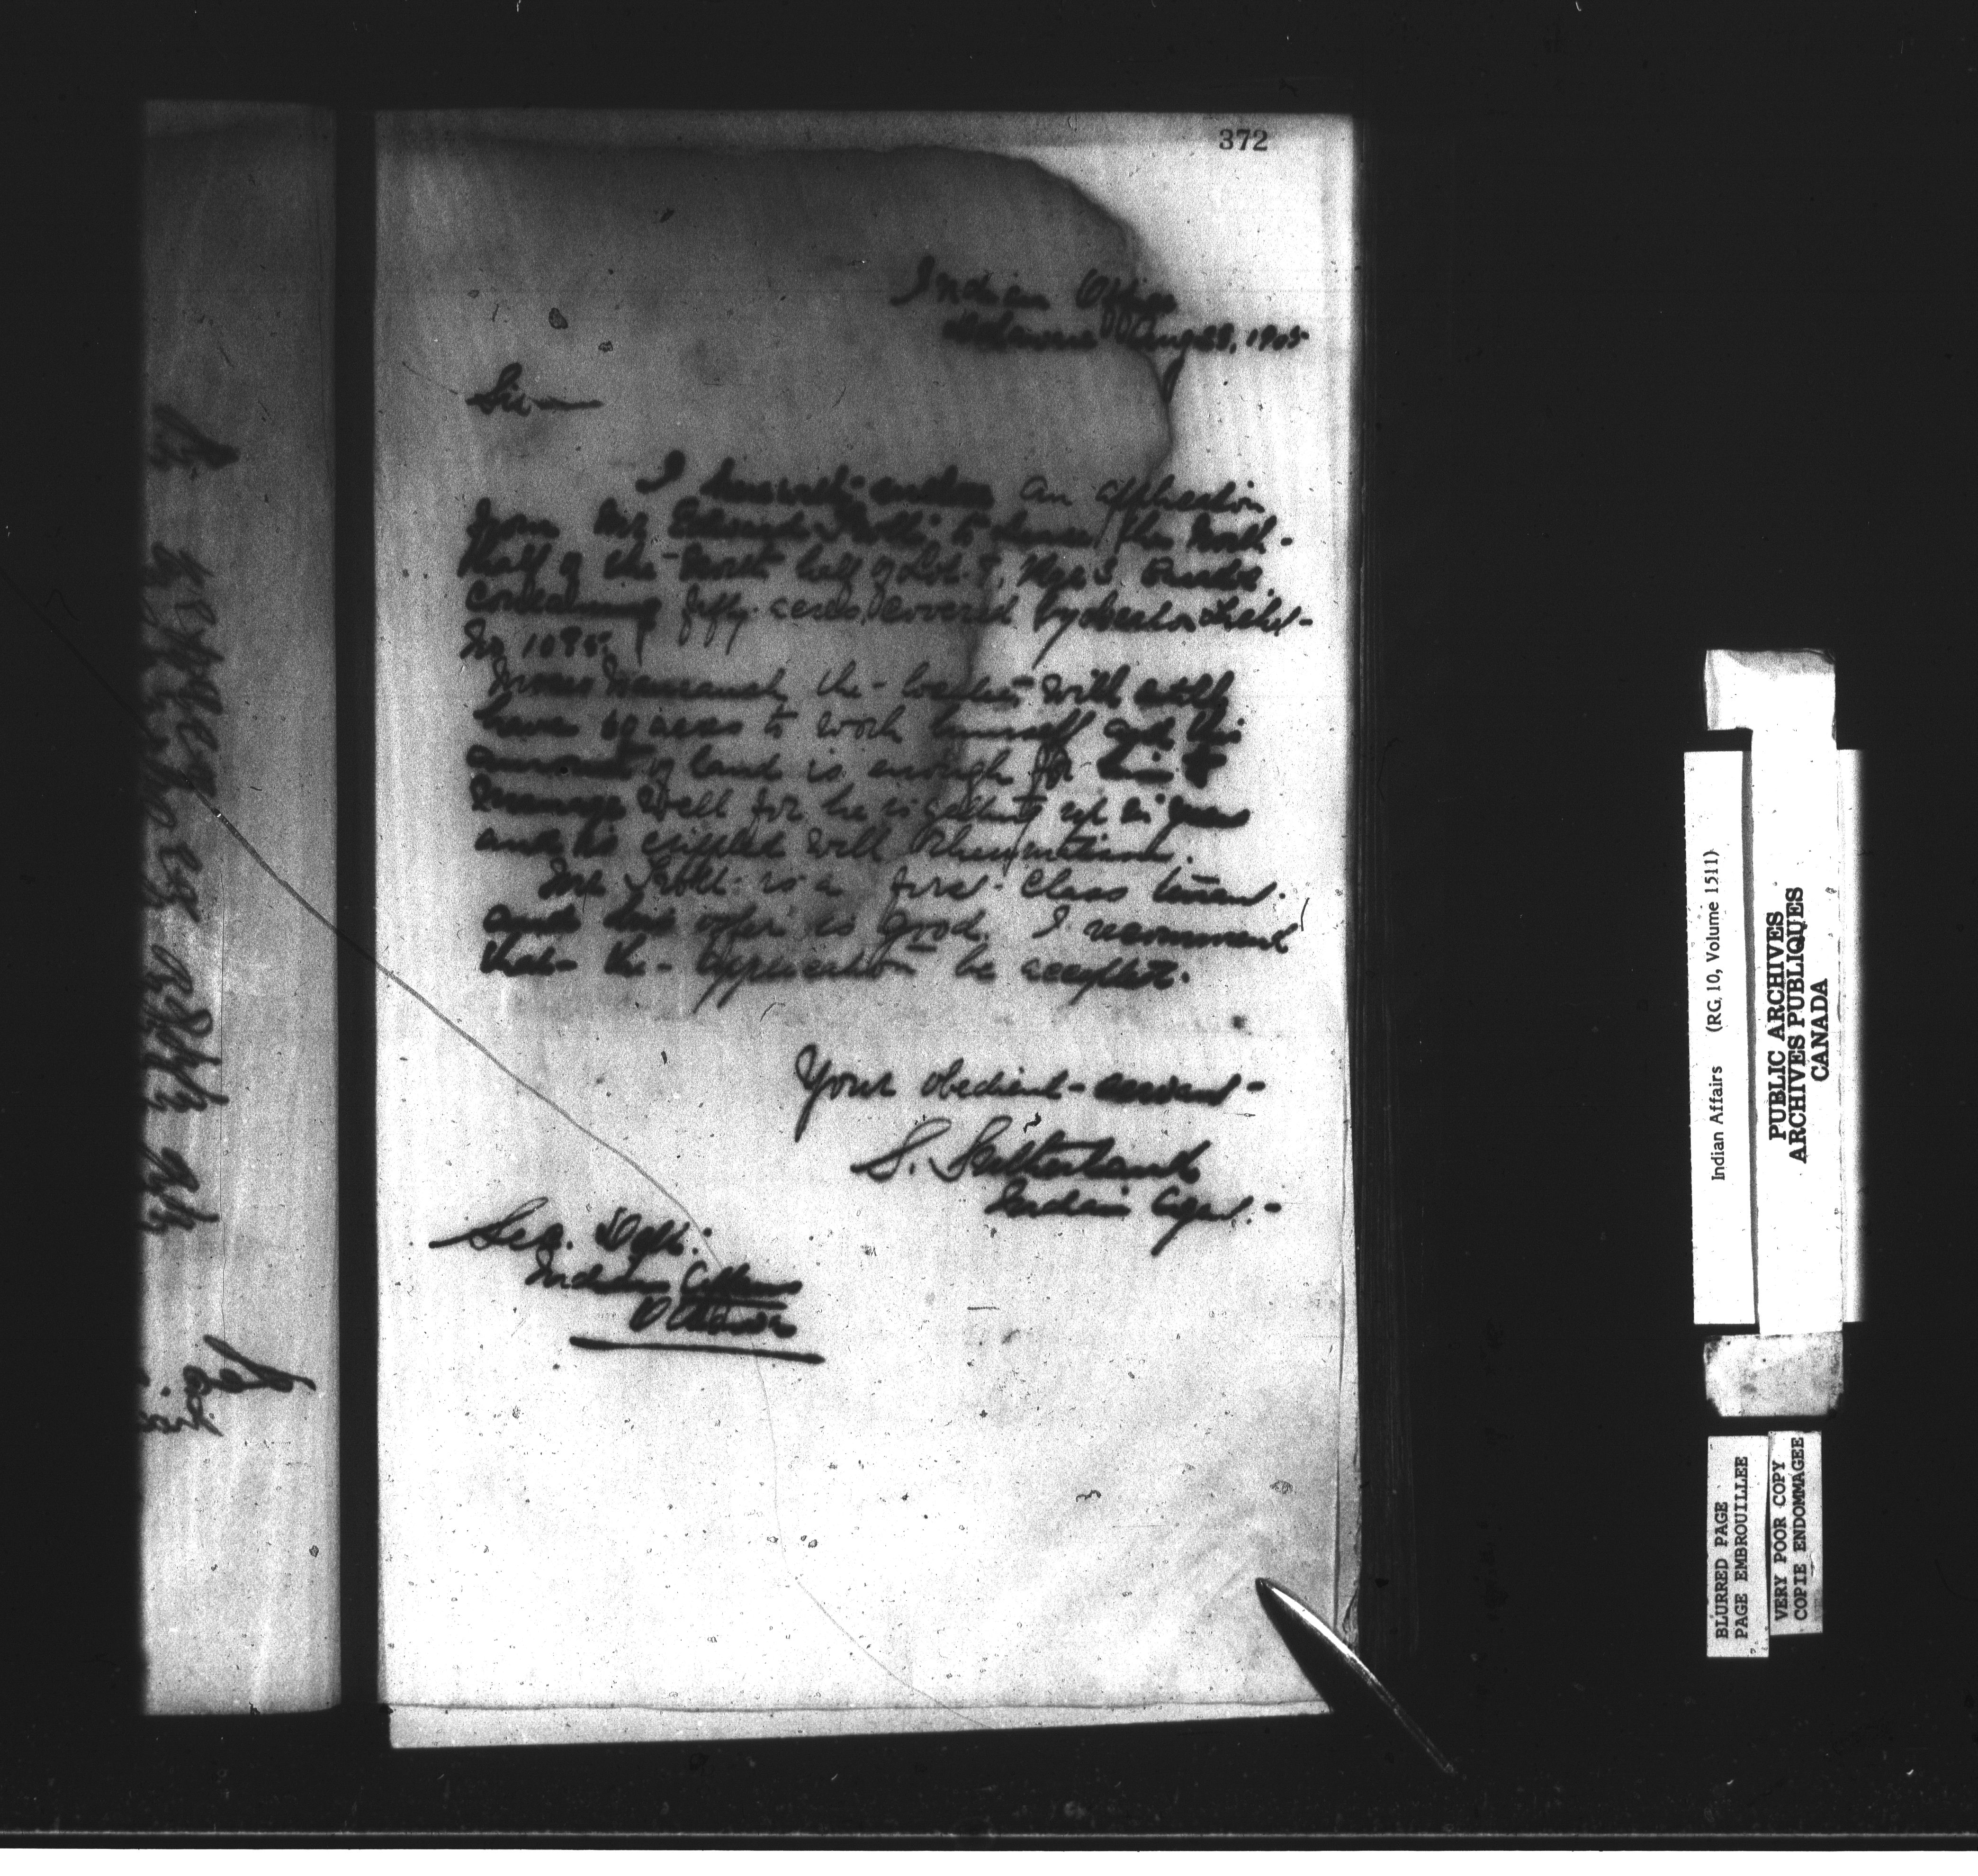 372
Indian Office
Delaware Aug 28, 1905
Sir
I herewith enclose an application
from Mr Edward to lease the North
half of the North half of Lot 8, Rge 3
containing fifty acres, covered by Location Ticket
No 1095.
Moses the locatee will still
have 60 acres to work himself and this
amount of land is enough for him to
manage well for he is getting up in years
and is crippled with Rheumatism.
Mr is a first class tenant
and his offer is good. I recommend
that the application be accepted.
Your obedient servant
S. Sutherland
Indian Agent.
Sec. Dept.
Indian Affairs
Ottawa
Indian Affairs (RG. 10, Volume 1511)
PUBLIC ARCHIVES
ARCHIVES PUBLIQUES
CANADA
BLURRED PAGE
PAGE EMBROUILLEE
VERY POOR COPY
COPIE ENDOMMAGEE